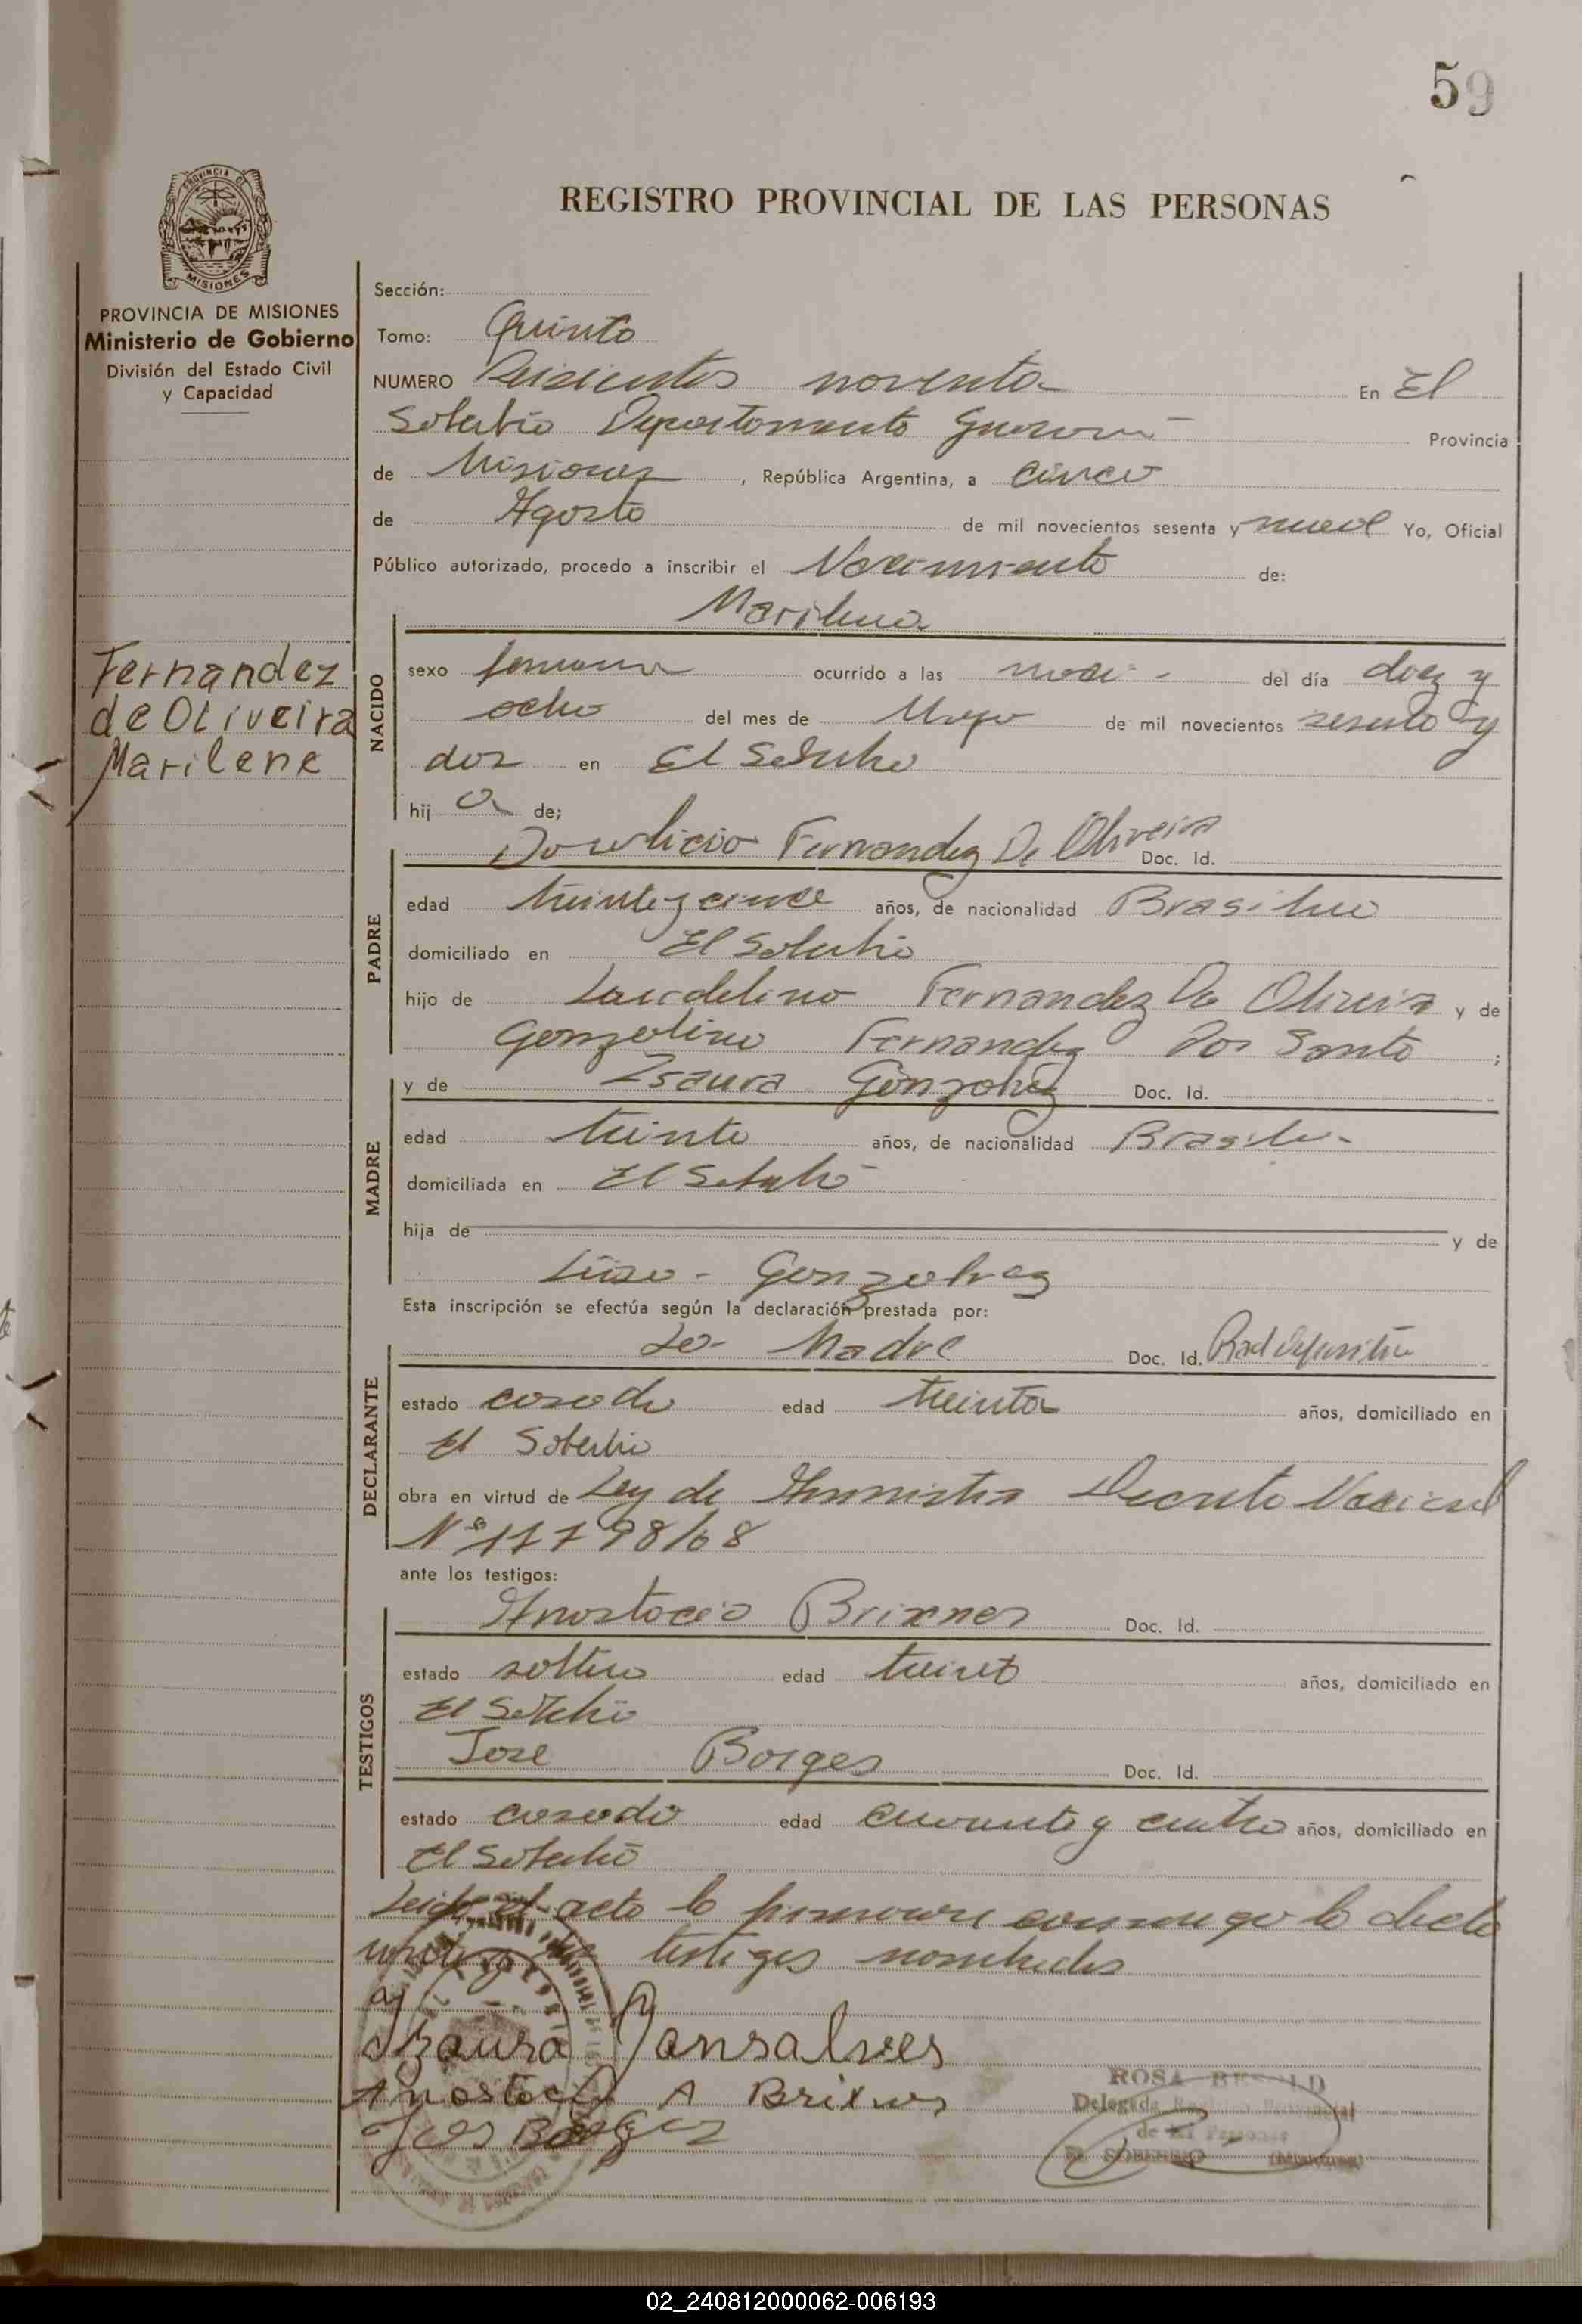 59
REGISTRO PROVINCIAL DE LAS PERSONAS
PROVINCIA DE
MISIONES
PROVINCIA DE MISIONES
Ministerio de Gobierno
División del Estado Civil
y Capacidad
Fernandez
de Oliveira
Marilene
Sección:
Tomo: Quinto
NUMERO Seiscientos noventa En El
Soberbio Departamento Guarani Provincia
de Misiones, República Argentina, a cinco
de Agosto de mil novecientos sesenta y nueve Yo, Oficial
Público autorizado, procedo a inscribir el Nacimiento de:
Marilene
NACIDO
sexo femenino ocurrido a las del día diez y
ocho del mes de Mayo de mil novecientos sesenta y
dos en El Soberbio
hija de;
Fernandez De Oliveira Doc. Id.
PADRE
edad treinta y cinco años, de nacionalidad Brasilero
domiciliado en El Soberbio
hijo de Laudelino Fernandez De Oliveira y de
Fernandez Dos Santo ;
y de Isaura Gonzalvez Doc. Id.
MADRE
edad treinta años, de nacionalidad Brasilera
domiciliada en El Soberbio
hija de y de
Gonzalvez
Esta inscripción se efectúa según la declaración prestada por:
La Madre Doc. Id.
DECLARANTE
estado casada edad treinta años, domiciliado en
El Soberbio
obra en virtud de Ley de Amnistia Decreto Nacional
Nº 17798/68
ante los testigos:
Anastacio Brixner Doc. Id.
TESTIGOS
estado soltero edad treinta años, domiciliado en
El Soberbio
Jose Borges Doc. Id.
estado casado edad cuarenta y cuatro años, domiciliado en
El Soberbio
Leido el acta la firmaron conmigo la decla
testigos nombrados
Izaura Gonsalves
Anastacio A Brixner
Jose Borges
ROSA
Delegada Registro Provincial
de las Personas
EL SOBERBIO (Misiones)
02_240812000062-006193